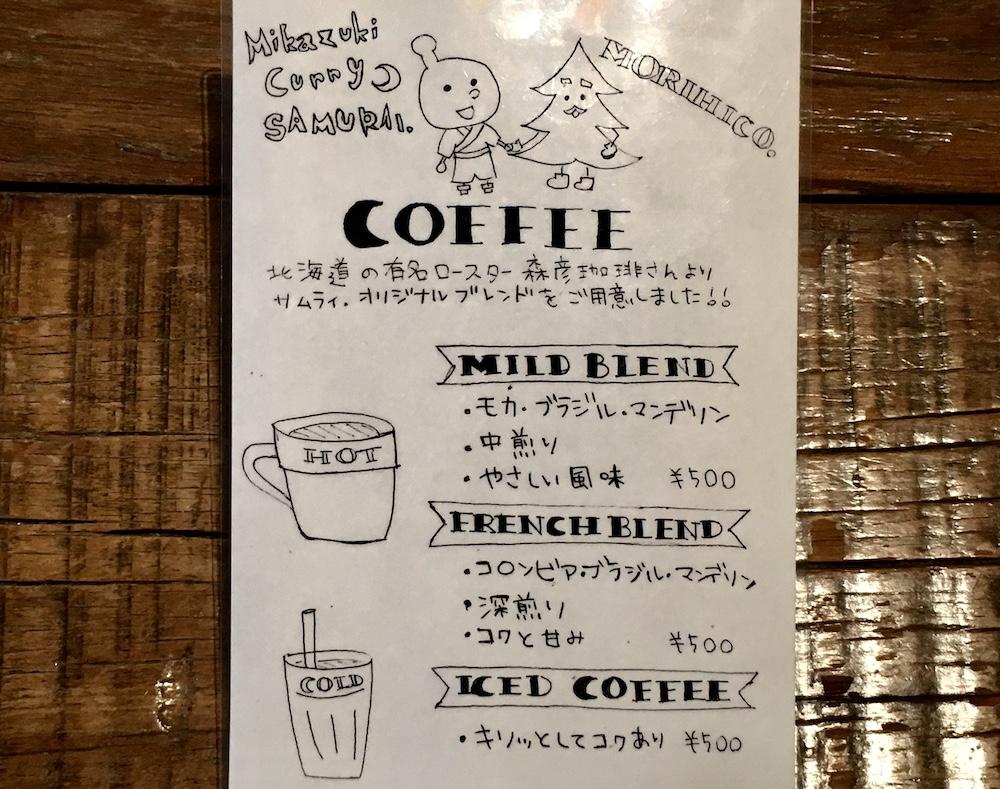 Mikazuki
Curry
SAMURAI.
MORIHICO.
COFFEE
北海道の有名ロースター森彦珈琲さんより
サムライ.オリジナルブレンドをご用意しました!!
MILD BLEND
・モカ・ブラジル・マンデリン
・中煎り
・やさしい風味 ¥500
HOT
FRENCH BLEND
・コロンビア・ブラジル・マンデリン
・深煎り
・コクと甘み ¥500
COLD
ICED COFFEE
・キリッとしてコクあり ¥500